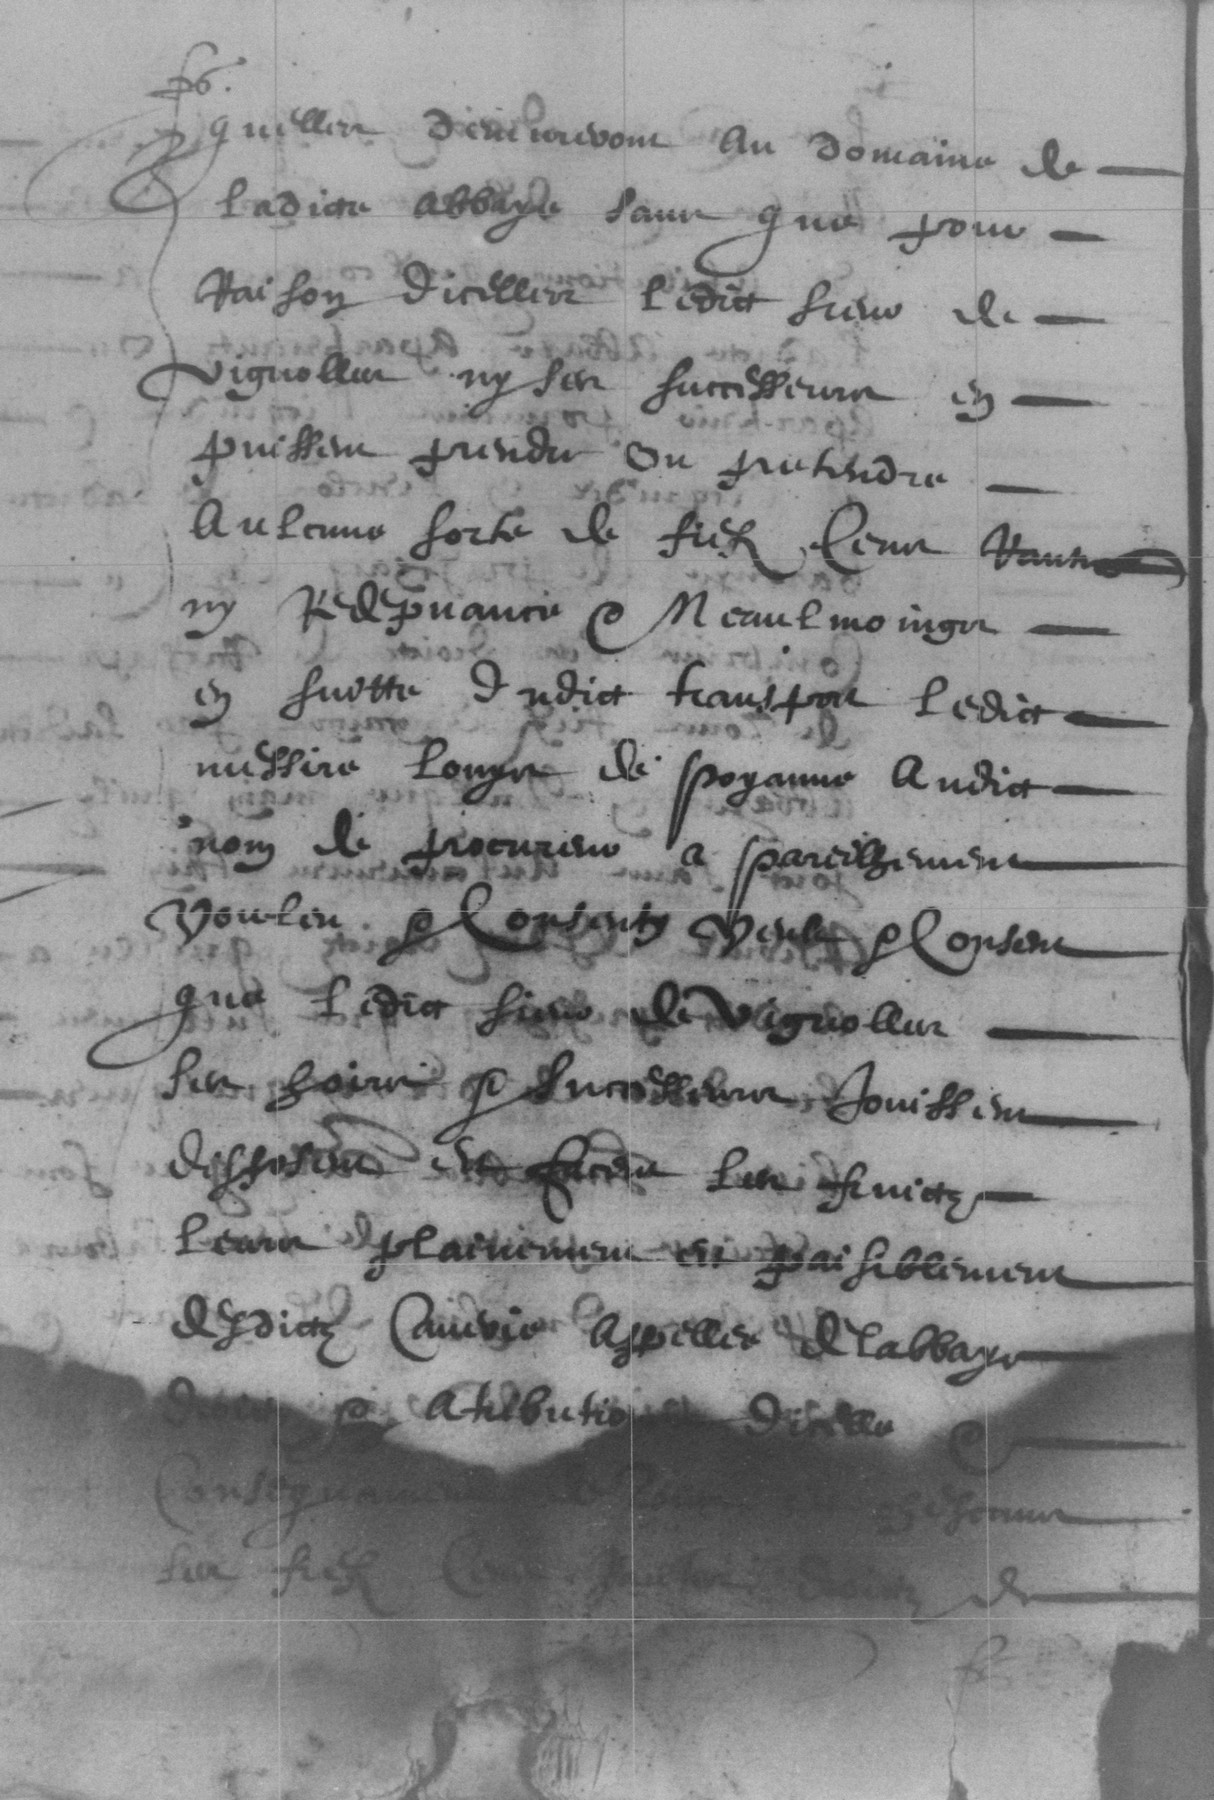 quelles demeureront au domaine de
ladicte abbaye sans que pour
Raison dicelles ledict sieur de
vignolles ny ses successeurs en
puissent prendre ou pretendre
Aulcune sorte de fiefz Cens Rantes
ny Redepvance & Neaulmoings
en suitte dudict transport ledict
messire Louys de poyanne Audict
nom de procureur a pareilhement
Vouleu & Consenty Veult & Consent
que ledict sieur de Vignolles
ses hoirs & successeurs Jouissent
disposent et facent les fruictz
leurs plainement et paisiblement
desdictz appellee de labbaye
& Atribution dicelle &
Consequament de
ses fiefz Cens de